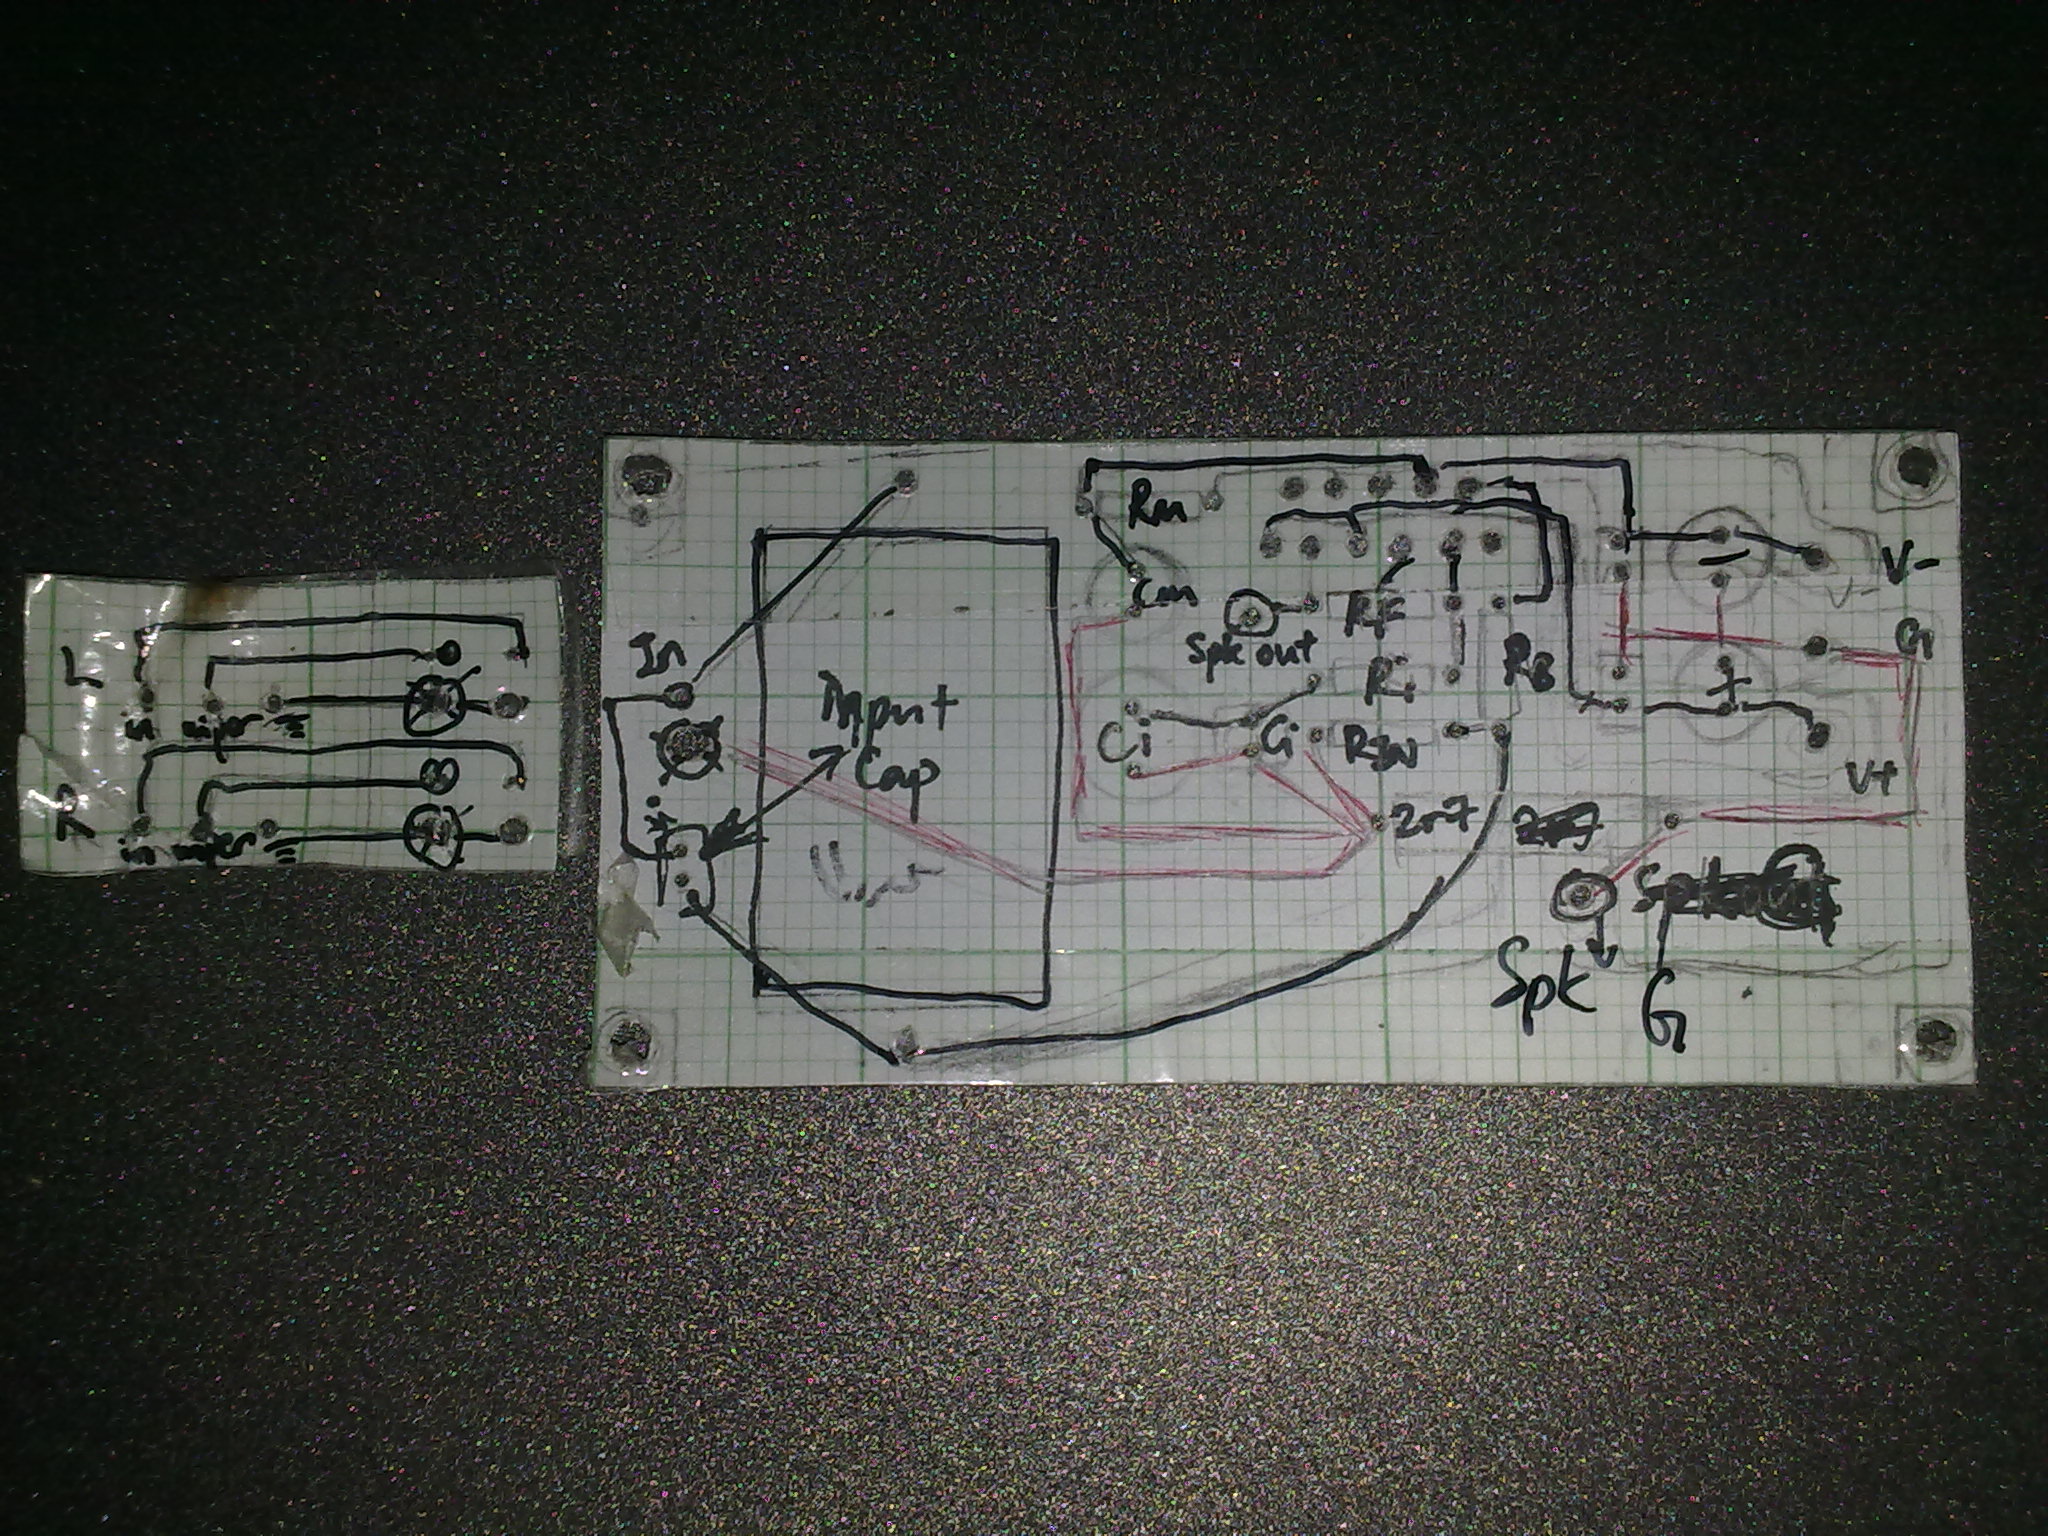 L
in wiper
R
in wiper
In
Input
Cap
Rm
Cm
Spk out
RF
Ri
RB
Ci
Ci
RIN
2R7
V-
V-
G
V+
Spk
G